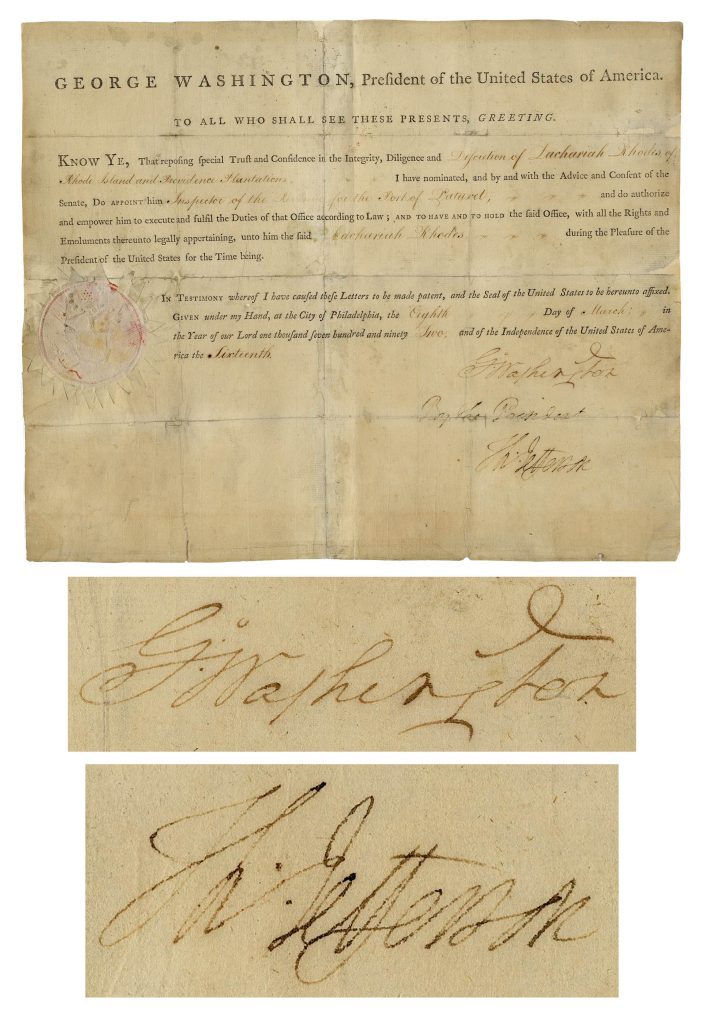 GEORGE WASHINGTON, Preſident of the United States of America.
TO ALL WHO SHALL SEE THESE PRESENTS, GREETING.
KNOW YE, That repoſing ſpecial Truſt and Confidence in the Integrity, Diligence and Diſcretion of Zachariah Rhodes of
Rhode Island and Providence Plantations I have nominated, and by and with the Advice and Conſent of the
Senate, DO APPOINT him Inspector of the Revenue for the Port of Patuxet, and do authorize
and empower him to execute and fulfil the Duties of that Office according to Law; AND TO HAVE AND TO HOLD the ſaid Office, with all the Rights and
Emoluments thereunto legally appertaining, unto him the ſaid Zachariah Rhodes during the Pleaſure of the
Preſident of the United States for the Time being.
IN TESTIMONY whereof I have cauſed theſe Letters to be made patent, and the Seal of the United States to be hereunto affixed.
GIVEN under my Hand, at the City of Philadelphia, the Eighth Day of March, in
the Year of our Lord one thouſand ſeven hundred and ninety Two, and of the Independence of the United States of Ame-
rica the Sixteenth
Go: Washington
By the President
Th: Jefferson
Go: Washington
Th: Jefferson